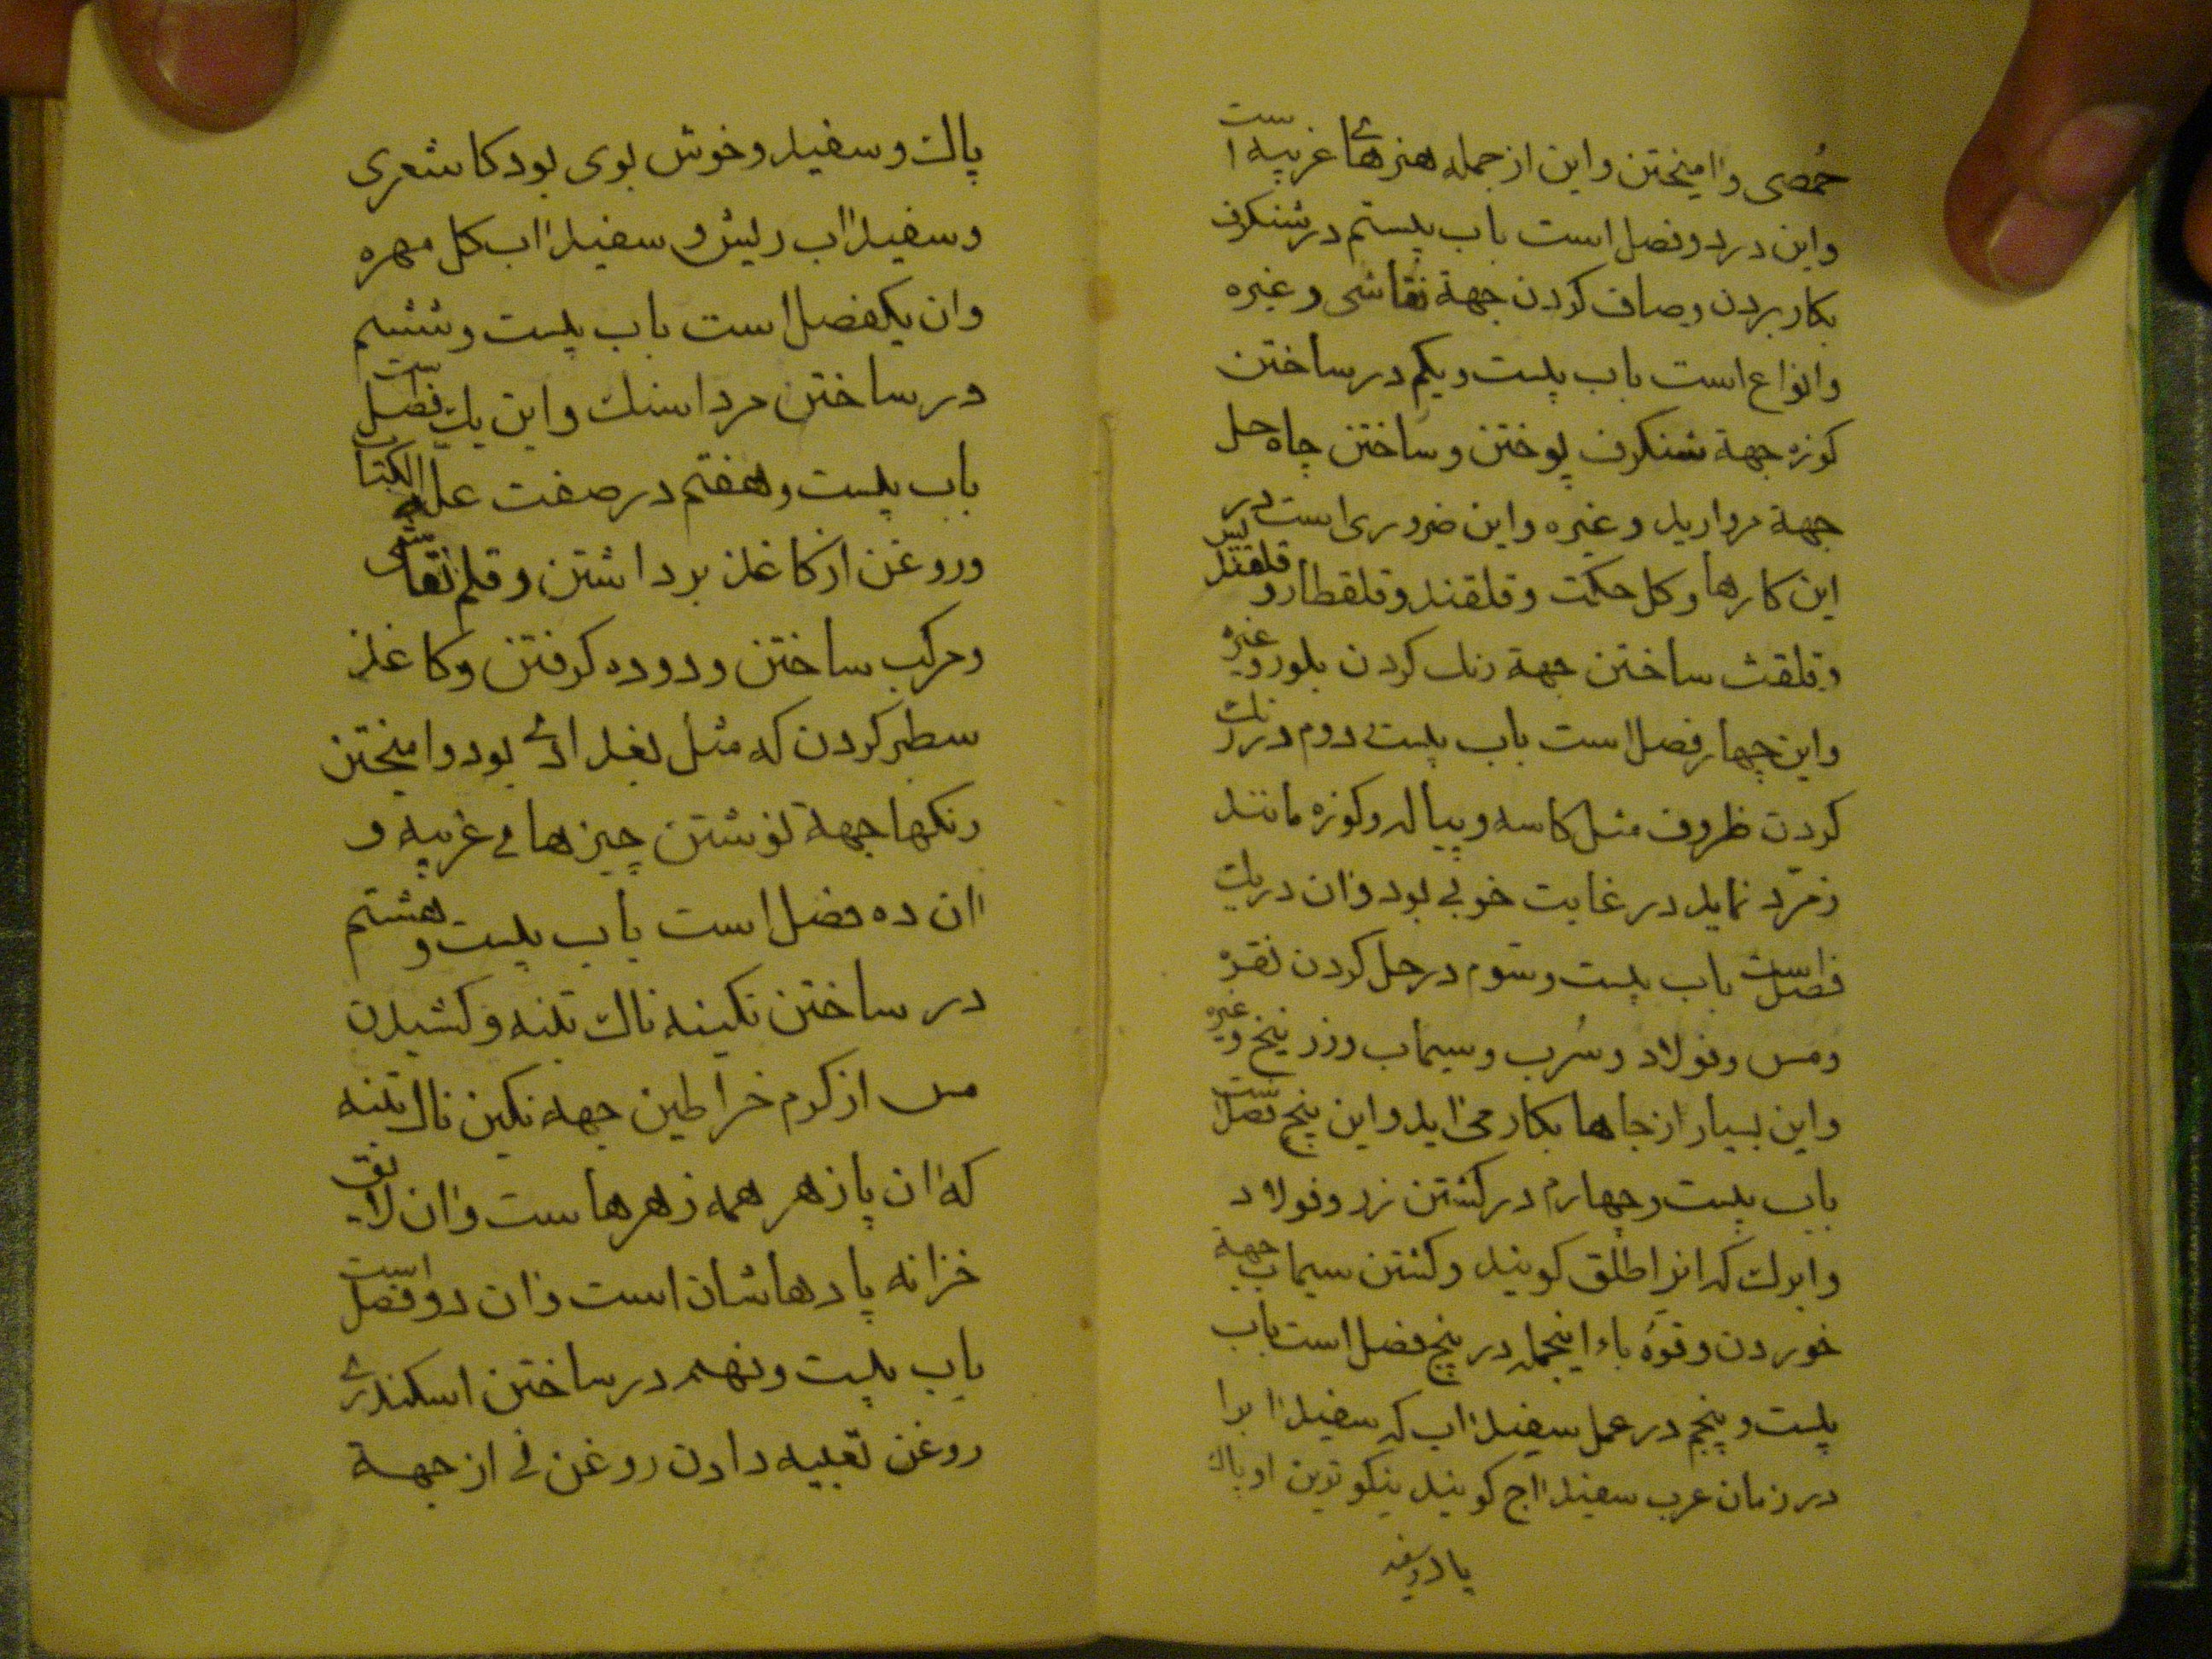 حُمصی واامیختن واین ازجمله هنرهاے غریبه است
واین دردوفصل است باب بیستم درشنکرف
بکاربردن وصاف کردن جهة نقاشی وغیره
وانواع است باب بیست ویکم درساختن
کوزه جهة شنکرف پوختن وساختن چاه حل
جهة مروارید وغیره واین ضروری است در
این کارها وکل حکمت وقلقند وقلقطار و قلقندیس
وقلقث ساختن جهة رنك کردن بلور وغیره
واین چهارفصل است باب بیست دوم در رنك
کردن ظروف مثل کاسه وپیاله وکوزه مانند
زمرّد نماید درغایت خوبی بود وان دریك
فصل است باب بیست وسوم درحل کردن نقره
ومس وفولاد وسُرب وسیماب وزرنیخ وغیره
واین بسیار ازجاها بکار می اید واین پنج فصل است
باب بیست وچهارم درکشتن زر وفولاد
وابرك که انرا طلق کویند وکشتن سیماب جهة
خوردن وقوّه باء اینجمله درپنج فصل است باب
بیست وپنجم درعمل سفیداب که سفیداب را
درزمان عرب سفیداج کویند نیکوترین او پاك
پاك وسفید
پاك وسفید وخوش بوی بود کاشغری
وسفیداب ریش وسفیداب کل مهره
وان یکفصل است باب بیست وششم
درساختن مرداسنك واین یك فصل ست
باب بیست وهفتم درصفت علّم الکتاب
وروغن ازکاغذ برداشتن وقلم نقاشی
ومرکب ساختن ودوده کرفتن وکاغذ
سطبر کردن که مثل بغدادے بود وامیختن
رنکها جهة نوشتن چیزهای غریبه و
اان ده فصل است باب بیست وهشتم
درساختن نکینه ناك تبنه وکشیدن
مس ازکرم خراطین جهه نکین ناك تبنه
که ان پازهر همه زهرهاست وان لایق
خزانه پادهاشان است وان دوفصل است
باب بیست ونهم درساختن اسکندرے
روغن تعبیه دادن روغن فی ازجهة